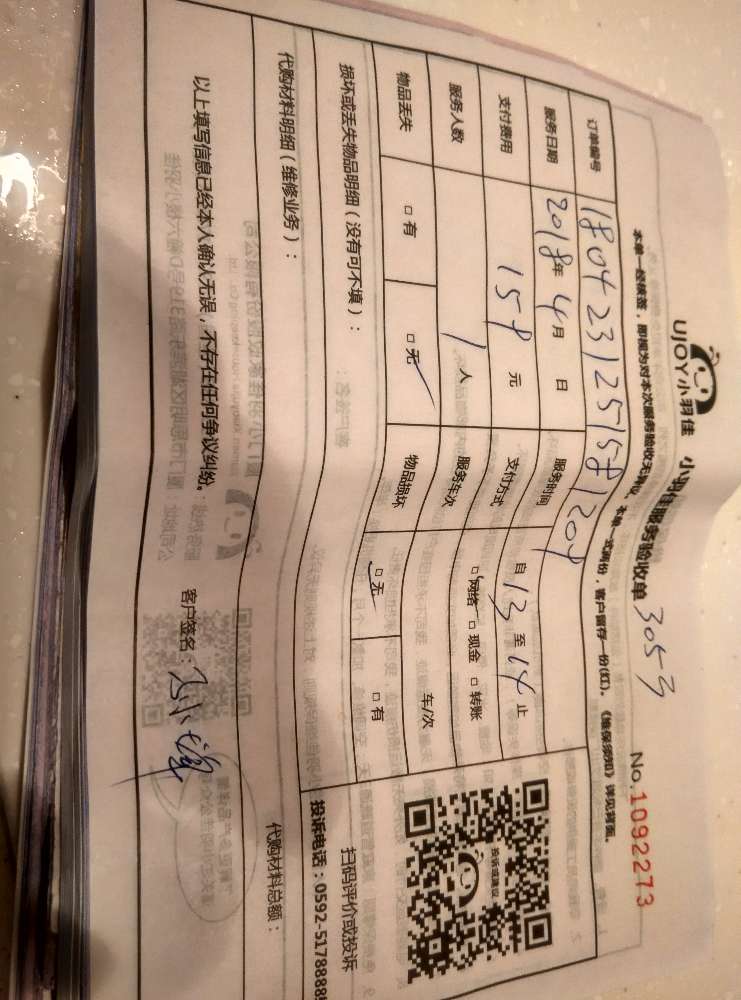 UJOY小羽佳 小羽佳服务验收单 3053
No.1092273
本单一经续签，即视为对本次服务验收无异议。本单一式两份，客户留存一份(红)。《维保须知》详见背面。
订单编号
服务日期 2018年4月 日 服务时间 自13至14止
支付费用 158元 支付方式 □网络 □现金 □转账
服务人数 1人 服务车次 车/次
物品丢失 □有 □无 物品损坏 □无 □有
损坏或丢失物品明细（没有可不填）：
代购材料明细（维修业务）： 代购材料总额：
以上填写信息已经本人确认无误，不存在任何争议纠纷。 客户签名：
投诉或建议
扫码评价或投诉
投诉电话：0592-5178888